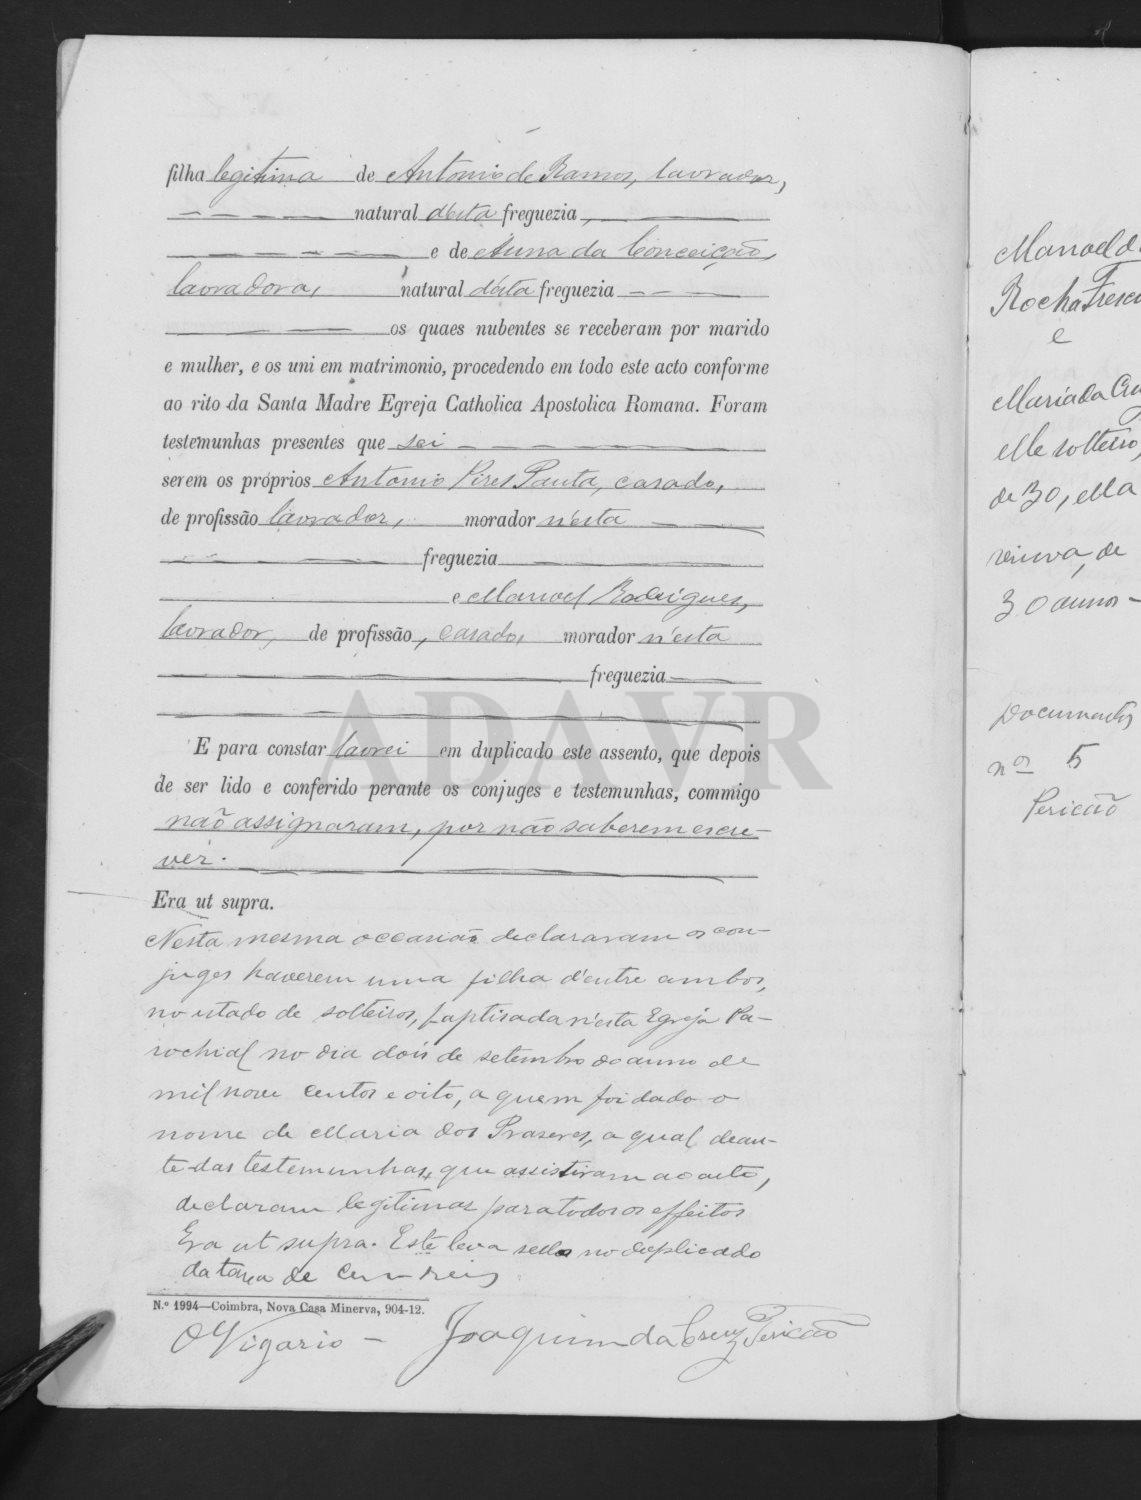 filha legitima de Antonio de Ramos, lavrador,
natural d'esta freguezia,
e de Anna da Conceição,
lavradora, natural d'esta freguezia
os quaes nubentes se receberam por marido
e mulher, e os uni em matrimonio, procedendo em todo este acto conforme
ao rito da Santa Madre Egreja Catholica Apostolica Romana. Foram
testemunhas presentes que sei
serem os próprios Antonio Pires Pauta, casado,
de profissão lavrador, morador n'esta
freguezia
e Manoel Rodrigues,
lavrador, de profissão, casado, morador n'esta
freguezia
ADAVR
E para constar lavrei em duplicado este assento, que depois
de ser lido e conferido perante os conjuges e testemunhas, commigo
não assignaram, por não saberem escre-
ver.
Era ut supra.
Nesta mesma occasião declararam os con-
juges haverem uma filha d'entre ambos,
no estado de solteiros, baptisada n'esta Egreja Pa-
rochial no dia dois de setembro do anno de
mil nove centos e oito, a quem foi dado o
nome de Maria dos Praseres, a qual dean-
te das testemunhas, que assistiram ao acto,
declaram legitimar para todos os effeitos
Era ut supra. Este leva sello no duplicado
da taxa de cem reis
N.º 1994—Coimbra, Nova Casa Minerva, 904-12.
O Vigario — Joaquim da Cruz Pericão
Manoel d
Rocha
e
Maria da
elle solteiro,
de 30, ella
viuva, de
30 annos -
Documentos
nos 5
Pericão